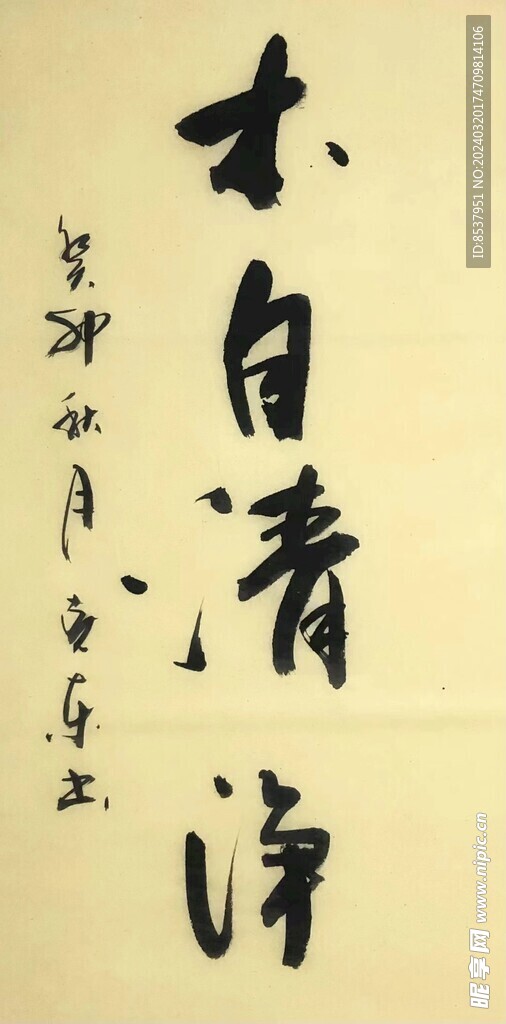 本自清净
癸卯秋月东书
ID:8537951 NO:20240320174709814106
昵享网 www.nipic.cn